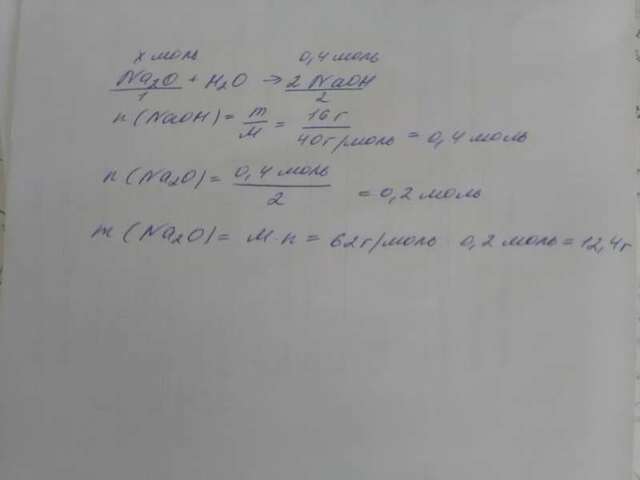 x моль 0,4 моль
Na₂O + H₂O → 2 NaOH
1 2
n (NaOH) = m/M = 16 г/40 г/моль = 0,4 моль
n (Na₂O) = 0,4 моль/2 = 0,2 моль
m (Na₂O) = M·n = 62 г/моль 0,2 моль = 12,4 г